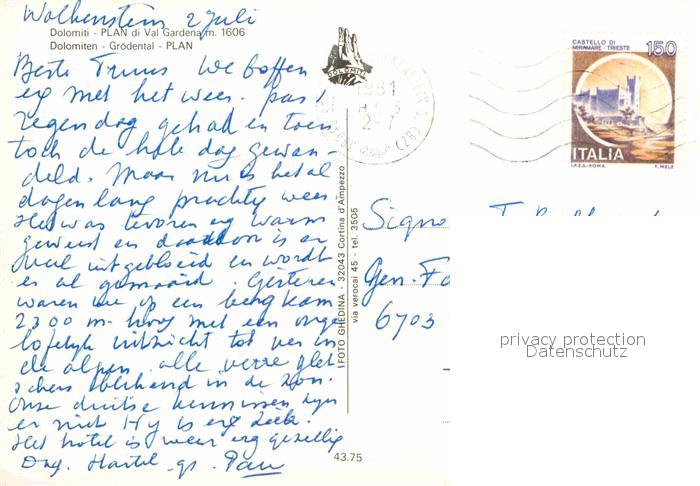 Wolkenstein 2 juli
Dolomiti - PLAN di Val Gardena m. 1606
Dolomiten - Grödental - PLAN
Beste Truus We boffen
erg met het weer. pas 1
regendag gehad en toen
toch de hele dag gewan-
deld. Maar nu is het al
dagen lang prachtig weer.
Het was tevoren erg warm
geweest en daardoor is er
veel uitgebloeid en wordt
er al gemaaid. Gisteren
waren we op een bergkam
2300 m. hoog met een onge
lofelijk uitzicht tot ver in
de alpen, alle verre glet-
schers blikkend in de zon.
Onze duitse kennissen zijn
er niet Hij is erg ziek.
Het hotel is weer erg gezellig
Dag. Hartel. gr. Pau
FOTO GHEDINA - 32043 Cortina d'Ampezzo
via verocai 45 - tel. 3505
43.75
DOLOMITI
1981
2-7
CASTELLO DI
MIRAMARE - TRIESTE
150
ITALIA
I.P.Z.S.-ROMA
T. MELE
Signo
Gen. Fo
6703
privacy protection
Datenschutz